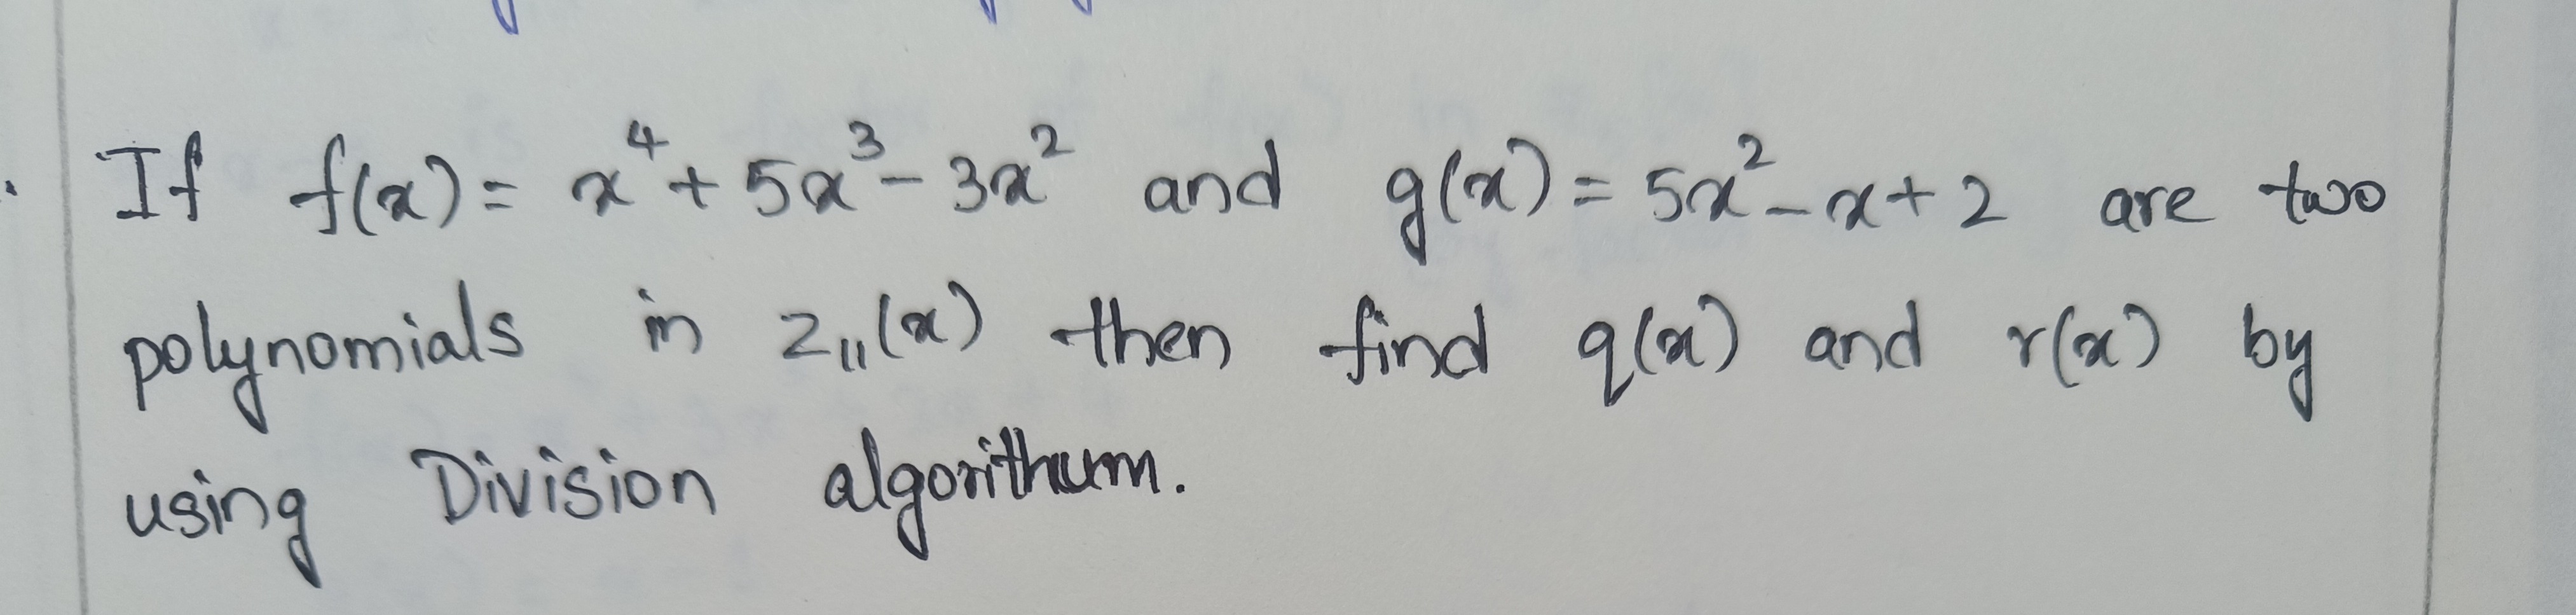 If f(x) = x⁴ + 5x³ - 3x² and g(x) = 5x² - x + 2 are two
polynomials in z₁₁(x) then find q(x) and r(x) by
using Division algorithum.